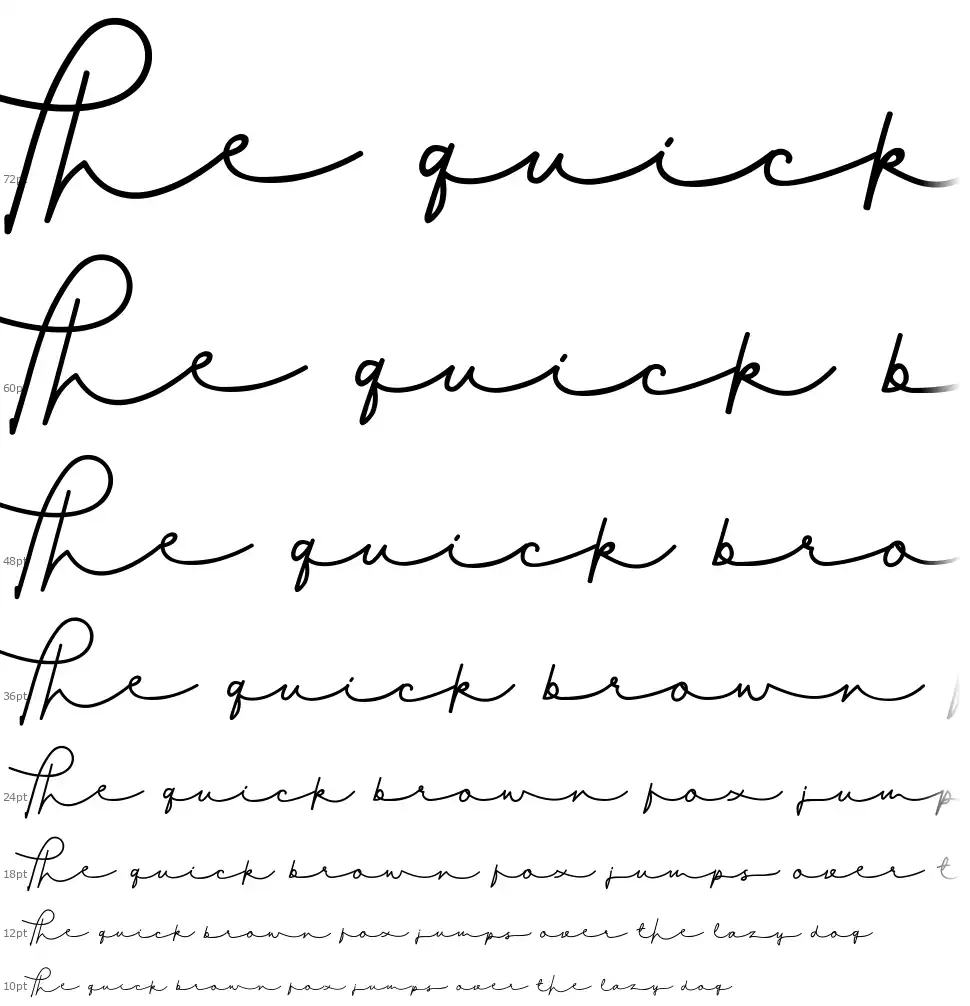 72pt The quick
60pt The quick b
48pt The quick bro
36pt The quick brown f
24pt The quick brown fox jump
18pt The quick brown fox jumps over t
12pt The quick brown fox jumps over the lazy dog
10pt The quick brown fox jumps over the lazy dog